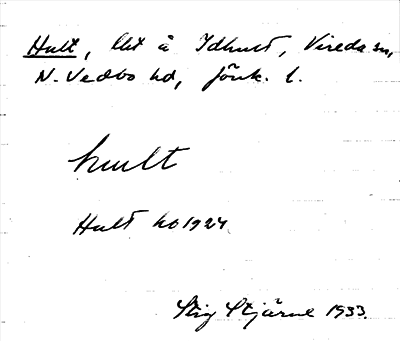 Hult, lht å Idhult, Vireda sn,
N. Vedbo hd, Jönk. l.
hult
Hult ko 1924
Stig Stjärne 1933.